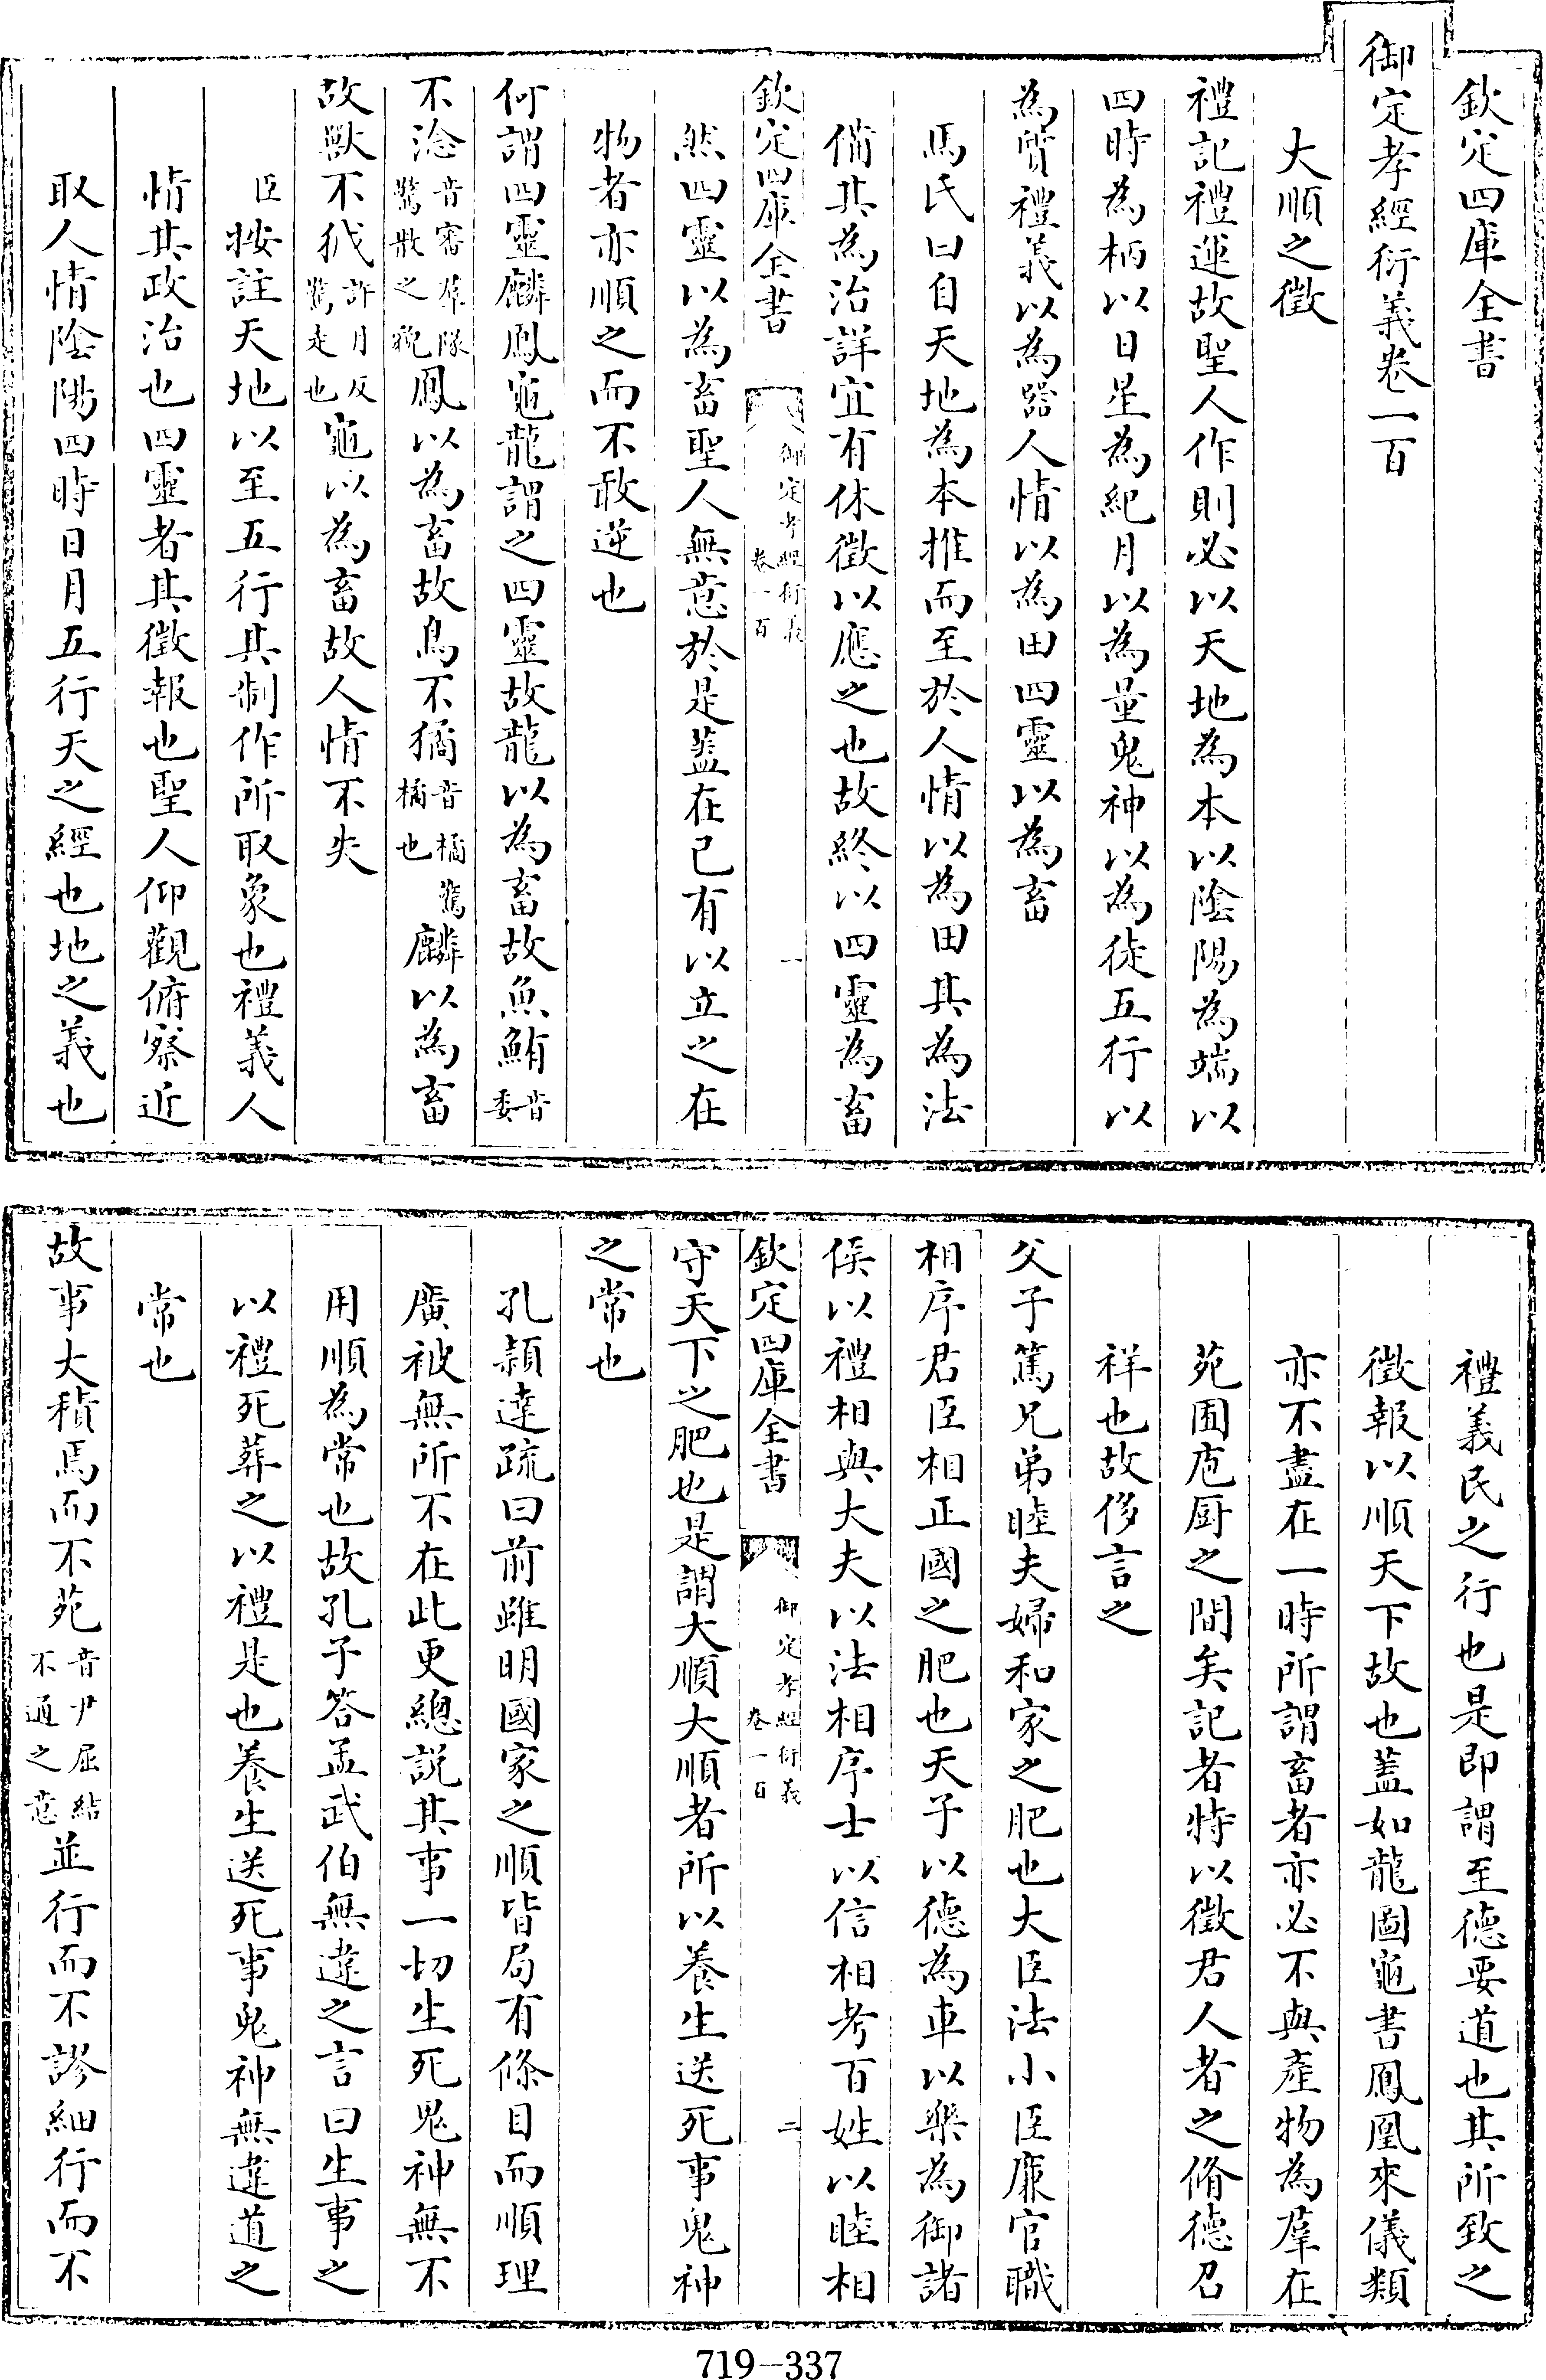 欽定四庫全書
御定孝經衍義卷一百
大順之徵
禮記禮運故聖人作則必以天地為本以陰陽為端以
四時為柄以日星為紀月以為量鬼神以為徒五行以
為質禮義以為器人情以為田四靈以為畜
馬氏曰自天地為本推而至於人情以為田其為法
備其為治詳宜有休徵以應之也故終以四靈為畜
欽定四庫全書 御定孝經衍義 卷一百 一
然四靈以為畜聖人無意於是蓋在已有以立之在
物者亦順之而不敢逆也
何謂四靈麟鳳龜龍謂之四靈故龍以為畜故魚鮪音委
不淰音審羣隊驚散之貌鳳以為畜故鳥不獝音橘驚橘也麟以為畜
故獸不狘許月反驚走也龜以為畜故人情不失
臣按註天地以至五行其制作所取象也禮義人
情其政治也四靈者其徵報也聖人仰觀俯察近
取人情陰陽四時日月五行天之經也地之義也
禮義民之行也是即謂至德要道也其所致之
徵報以順天下故也蓋如龍圖龜書鳳凰來儀類
亦不盡在一時所謂畜者亦必不與產物為羣在
苑囿庖厨之間矣記者特以徵君人者之脩德召
祥也故侈言之
父子篤兄弟睦夫婦和家之肥也大臣法小臣廉官職
相序君臣相正國之肥也天子以德為車以樂為御諸
侯以禮相與大夫以法相序士以信相考百姓以睦相
欽定四庫全書 御定孝經衍義 卷一百 二
守天下之肥也是謂大順大順者所以養生送死事鬼神
之常也
孔穎達疏曰前雖明國家之順皆局有條目而順理
廣被無所不在此更總說其事一切生死鬼神無不
用順為常也故孔子答孟武伯無違之言曰生事之
以禮死葬之以禮是也養生送死事鬼神無違道之
常也
故事大積焉而不苑音尹屈結不通之意並行而不謬細行而不
719-337